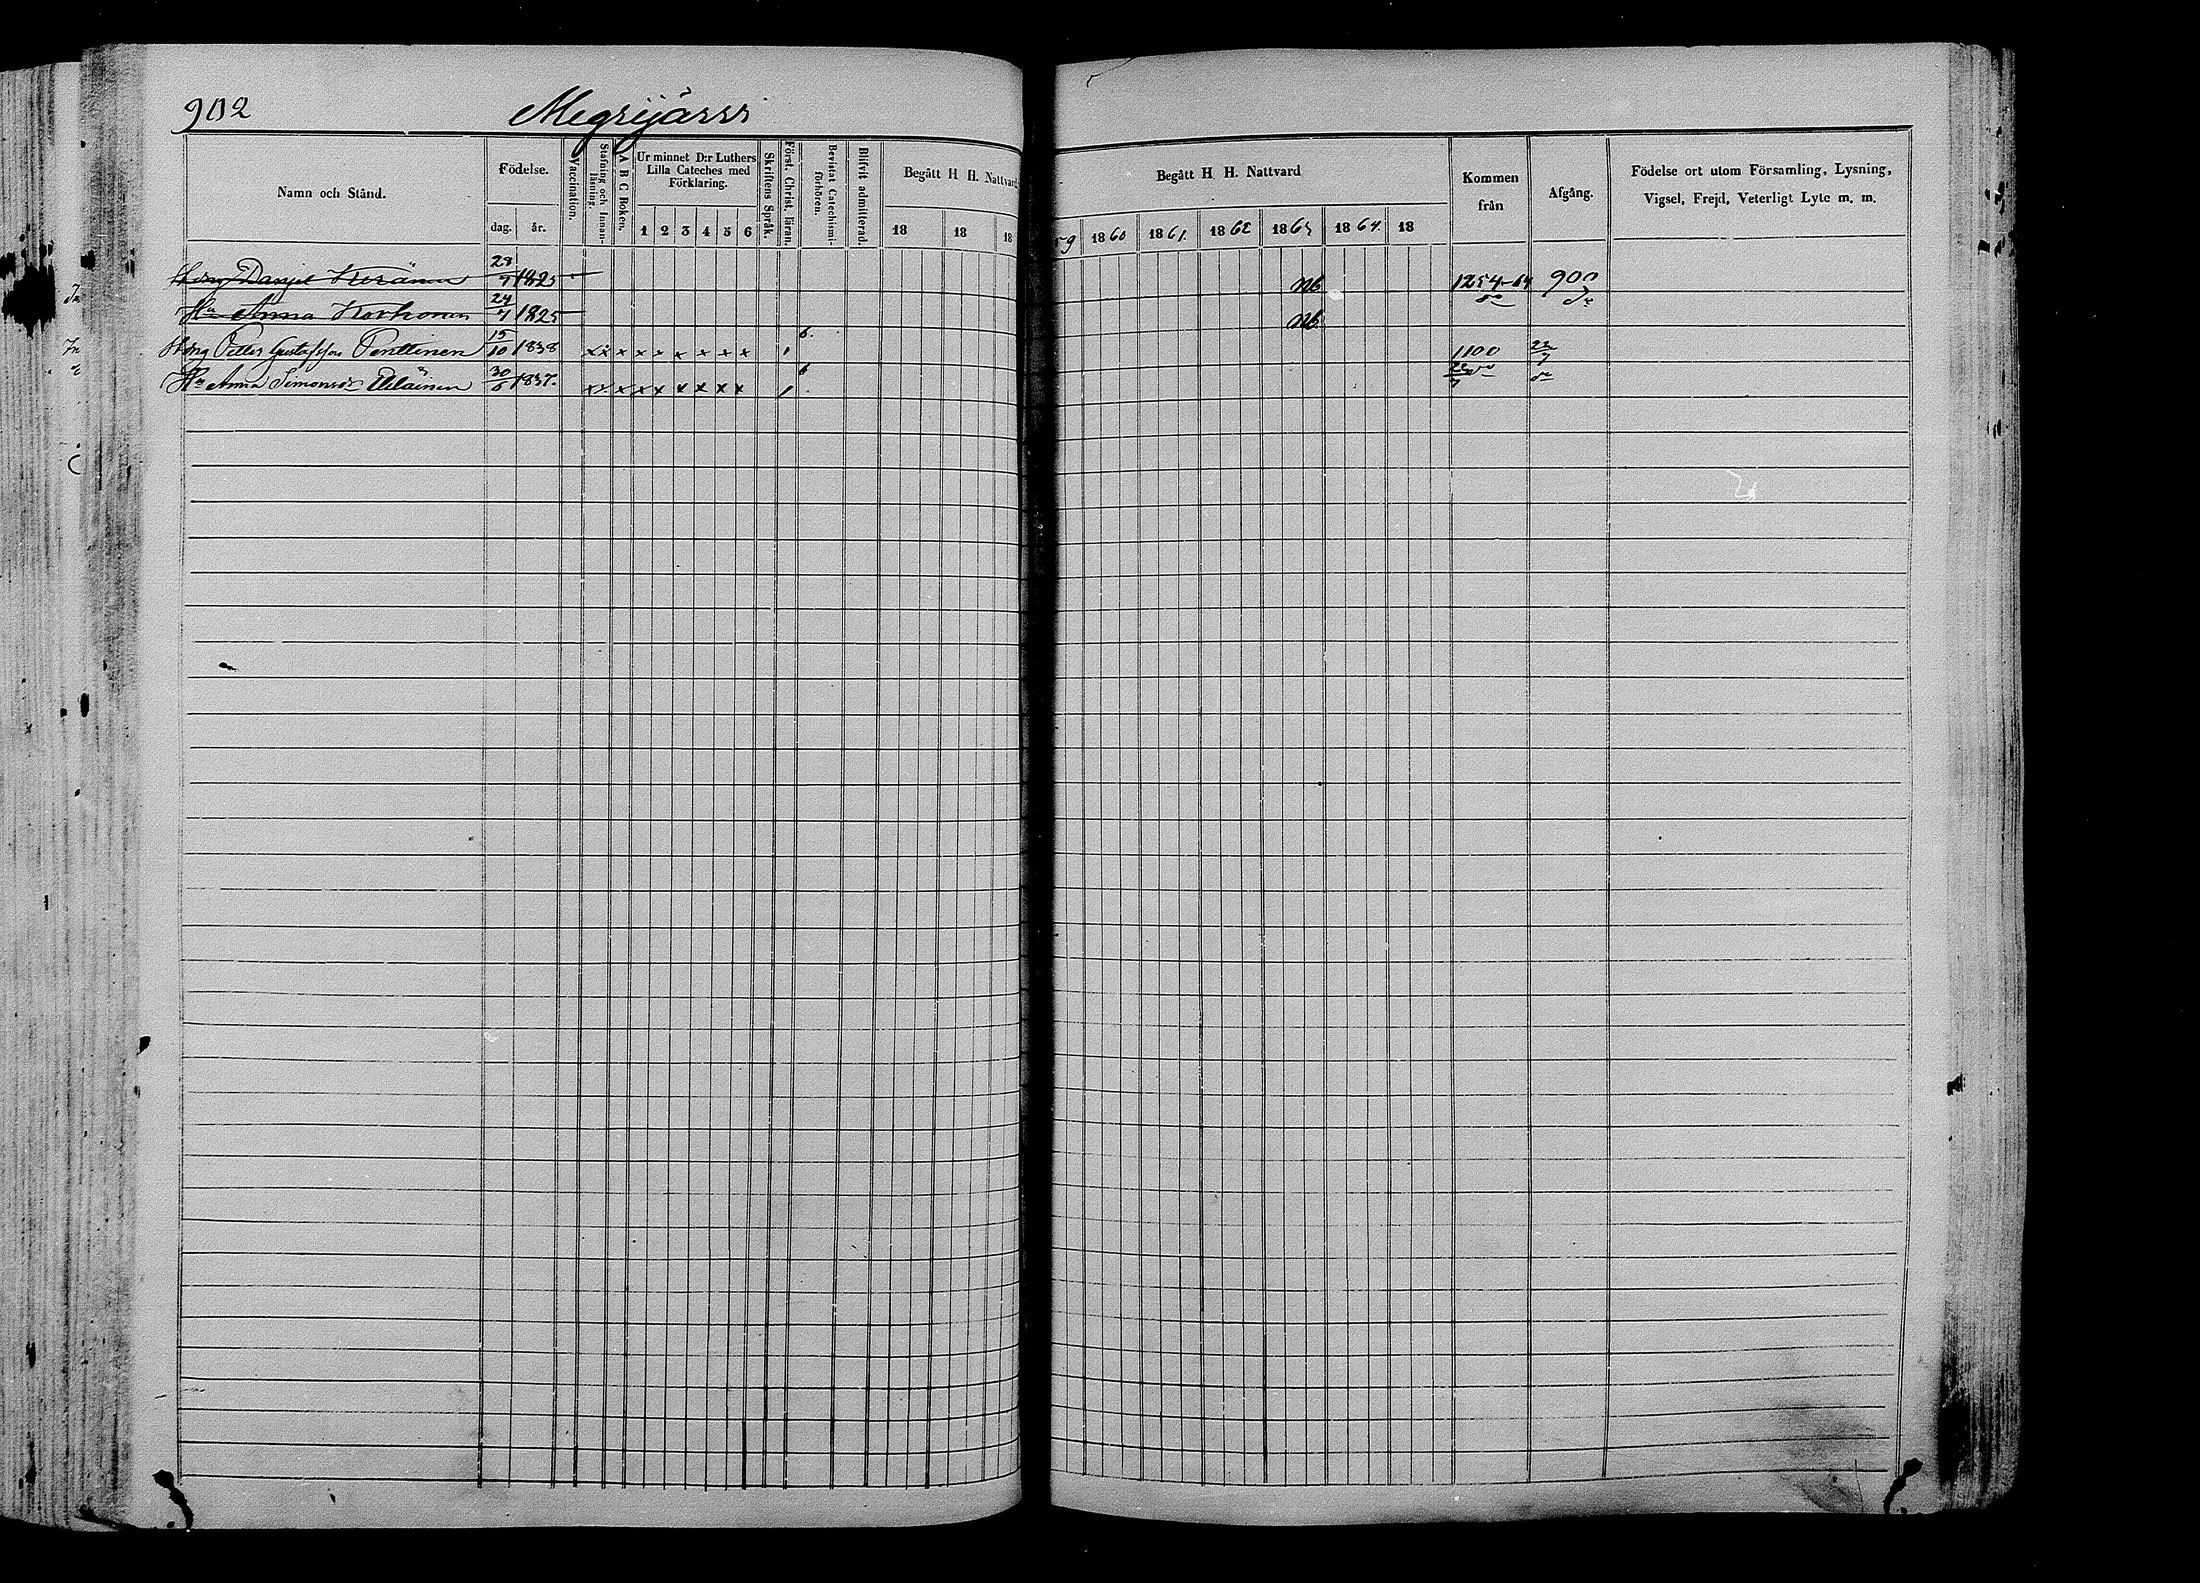 902 Megrijärvi
Namn och Stånd. Födelse. dag. år. Vaccination. Stafning och Innanläsning. A B C Boken. Ur minnet D:r Luthers Lilla Cateches med Förklaring. 1 2 3 4 5 6 Skriftens Språk. Först. Christ. läran. Bevistat Catechismiförhören. Blifvit admitterad. Begått H H. Nattvard 18 18 18
Begått H H. Nattvard 59 1860 1861. 1862 1863 1864. 18 Kommen från Afgång. Födelse ort utom Församling, Lysning, Vigsel, Frejd, Veterligt Lyte m. m.
Danjel Keränen 28/9 1825 Nb 1254-64 900
Hu Anna Korhonen 24/7 1825 Nb do do
Petter Gustafsson Penttinen 15/10 1838 x x x x x x x x x 6. 1100 22/7
Hu Anna Simonsdr 30/6 1837. x x x x x x x x x 6 22/7 do do